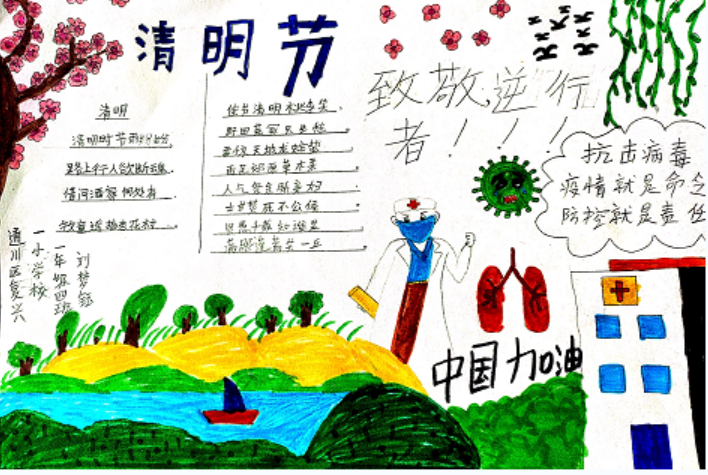 清明节
清明
清明时节雨纷纷,
路上行人欲断魂.
借问酒家何处有
牧童遥指杏花村.
佳节清明桃李笑,
野田荒冢只生愁
天地龙蛇蛰
雨足郊原草木柔
人乞祭余骄妾妇
士甘焚死不公侯
千载知谁是
满眼蓬蒿共一丘
致敬逆行
者!!!
抗击病毒
疫情就是命令
防控就是责任
通川区复兴
一小学校
一年级四班
刘梦
中国加油